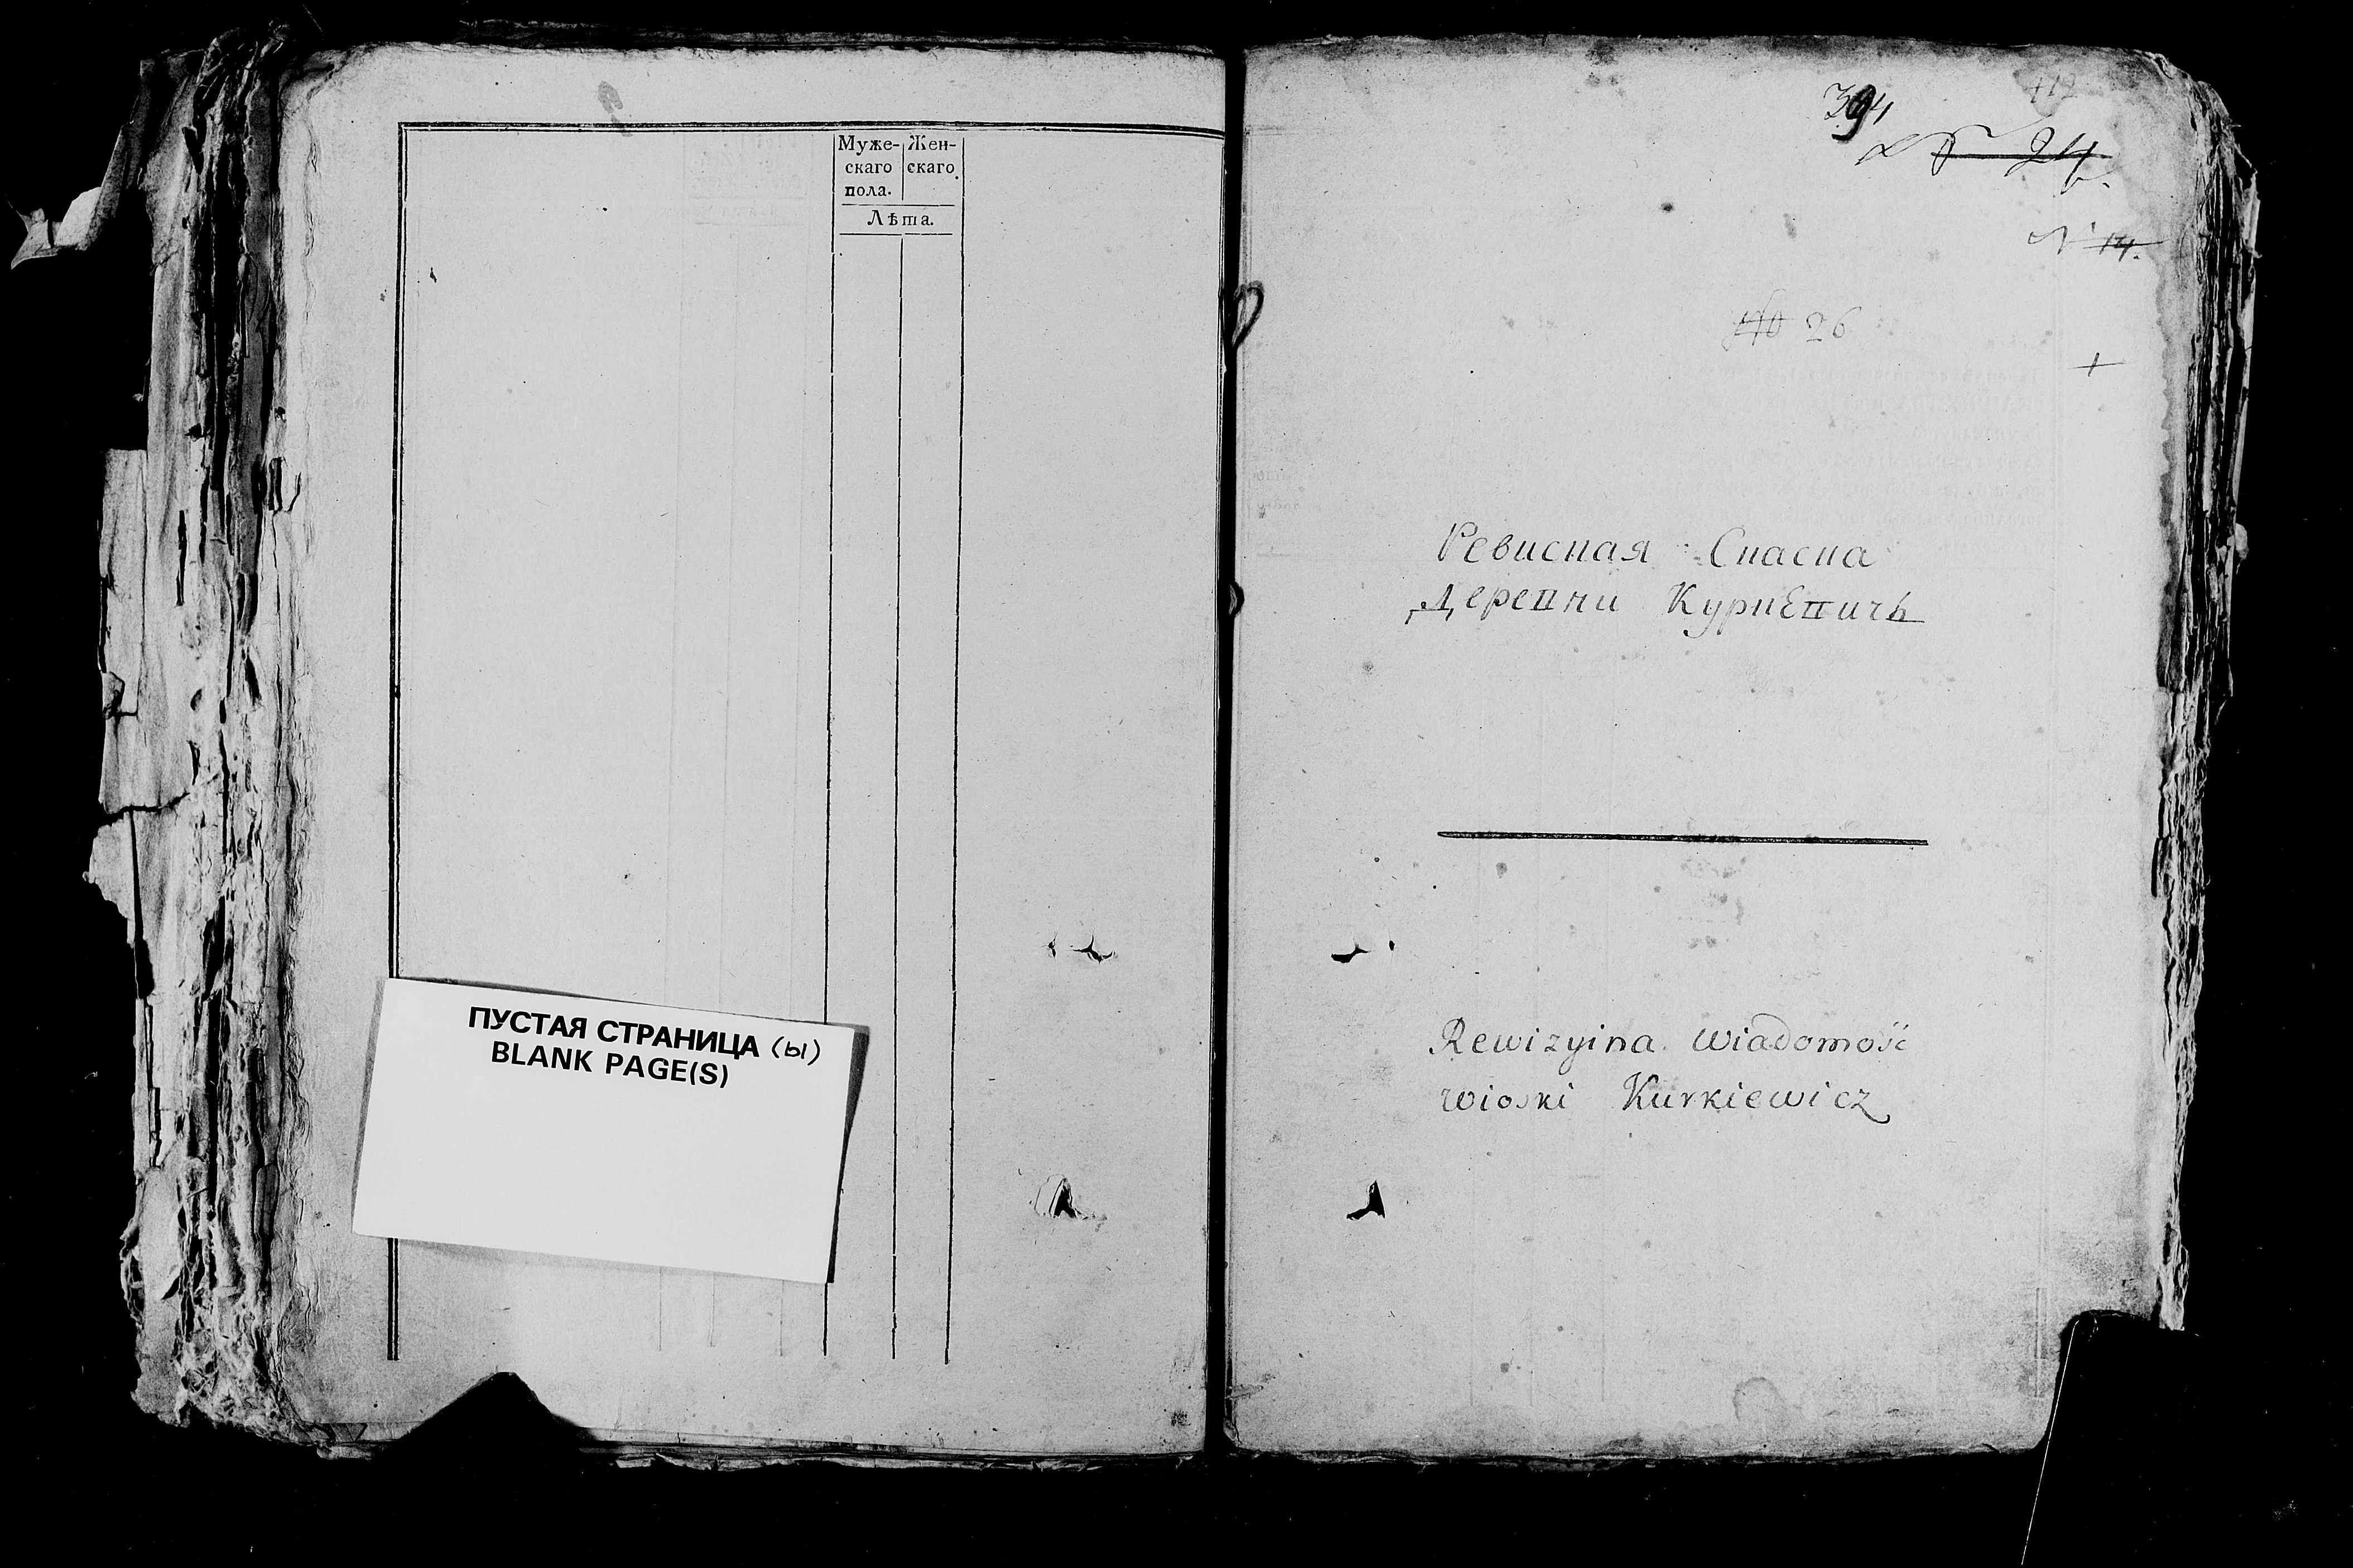 Муже- Жен-
скаго скаго
пола.
Лѣта.
ПУСТАЯ СТРАНИЦА (ы)
BLANK PAGE(S)
394
№ 24.
N 14.
№ 26
Ревиская Скаска
Деревни Куркевичь
Rewizyina Wiadomość
wioski Kurkiewicz